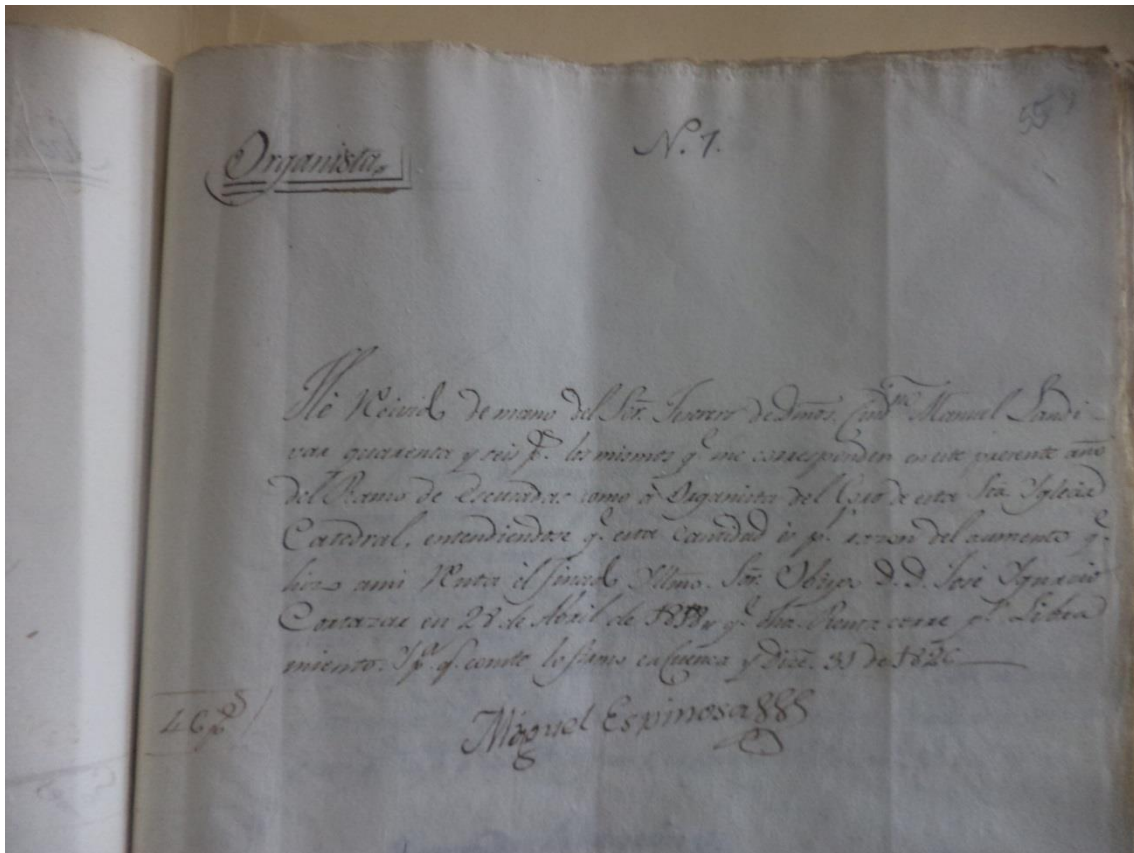 55
Organista.
N.º 1.
Hé Reivid de mano del Sor. Tesorero de Dmos. Ciud.no Manuel Landi-
var quarenta y seis p.s los mismos q.e me corresponden en este presente año
del Ramo de Escusadas como à Organista del Coro de esta Sta. Yglecia
Catedral, entendiendose q.e esta cantidad és p.r razon del aumento q.e
hizo ami Renta él finado Yltmo. Sor. Obispo D.D. José Ygnacio
Cortazar en 28 de Abril de q.e dha. Renta corre p.r Libra
miento. Y p.a q.e conste lo firmo en Cuenca y Dice. 31 de 1826
46 p.s
Miguel Espinosa